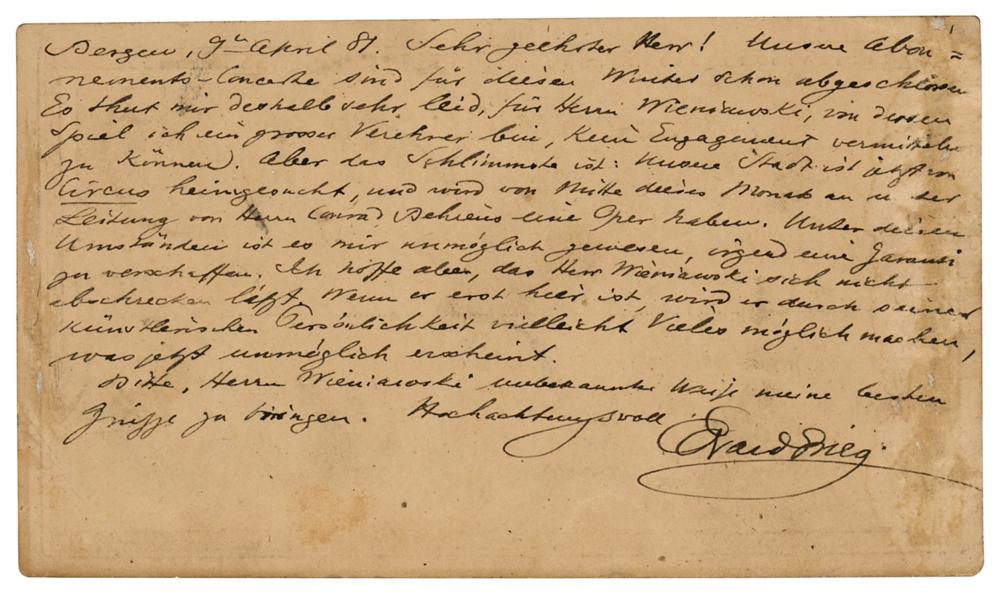 Bergen, 9ten April 81. Sehr geehrter Herr! Unsere Abon=
nements-Concerte sind für diesen Winter schon abgeschlossen
Es thut mir deshalb sehr leid, für Herrn Wieniawski, von dessen
Spiel ich ein grosser Verehrer bin, kein Engagement vermitteln
zu können. Aber das Schlimmste ist: Unsere Stadt ist jetzt von
Circus heimgesucht, und wird von Mitte dieses Monats an u. der
Leitung von Herrn Conrad Behrens eine Oper haben. Unter diesen
Umständen ist es mir unmöglich gewesen, irgend eine Garanti
zu verschaffen. Ich hoffe aber, das Herr Wieniawski sich nicht
abschrecken läßt. Wenn er erst hier ist, wird er durch seine
künstlerischen Persönlichkeit vielleicht Vieles möglich machen,
was jetzt unmöglich erscheint.
Bitte, Herrn Wieniawski unbekannter Weise meine besten
Grüsse zu bringen. Hochachtungsvoll
Edvard Grieg.